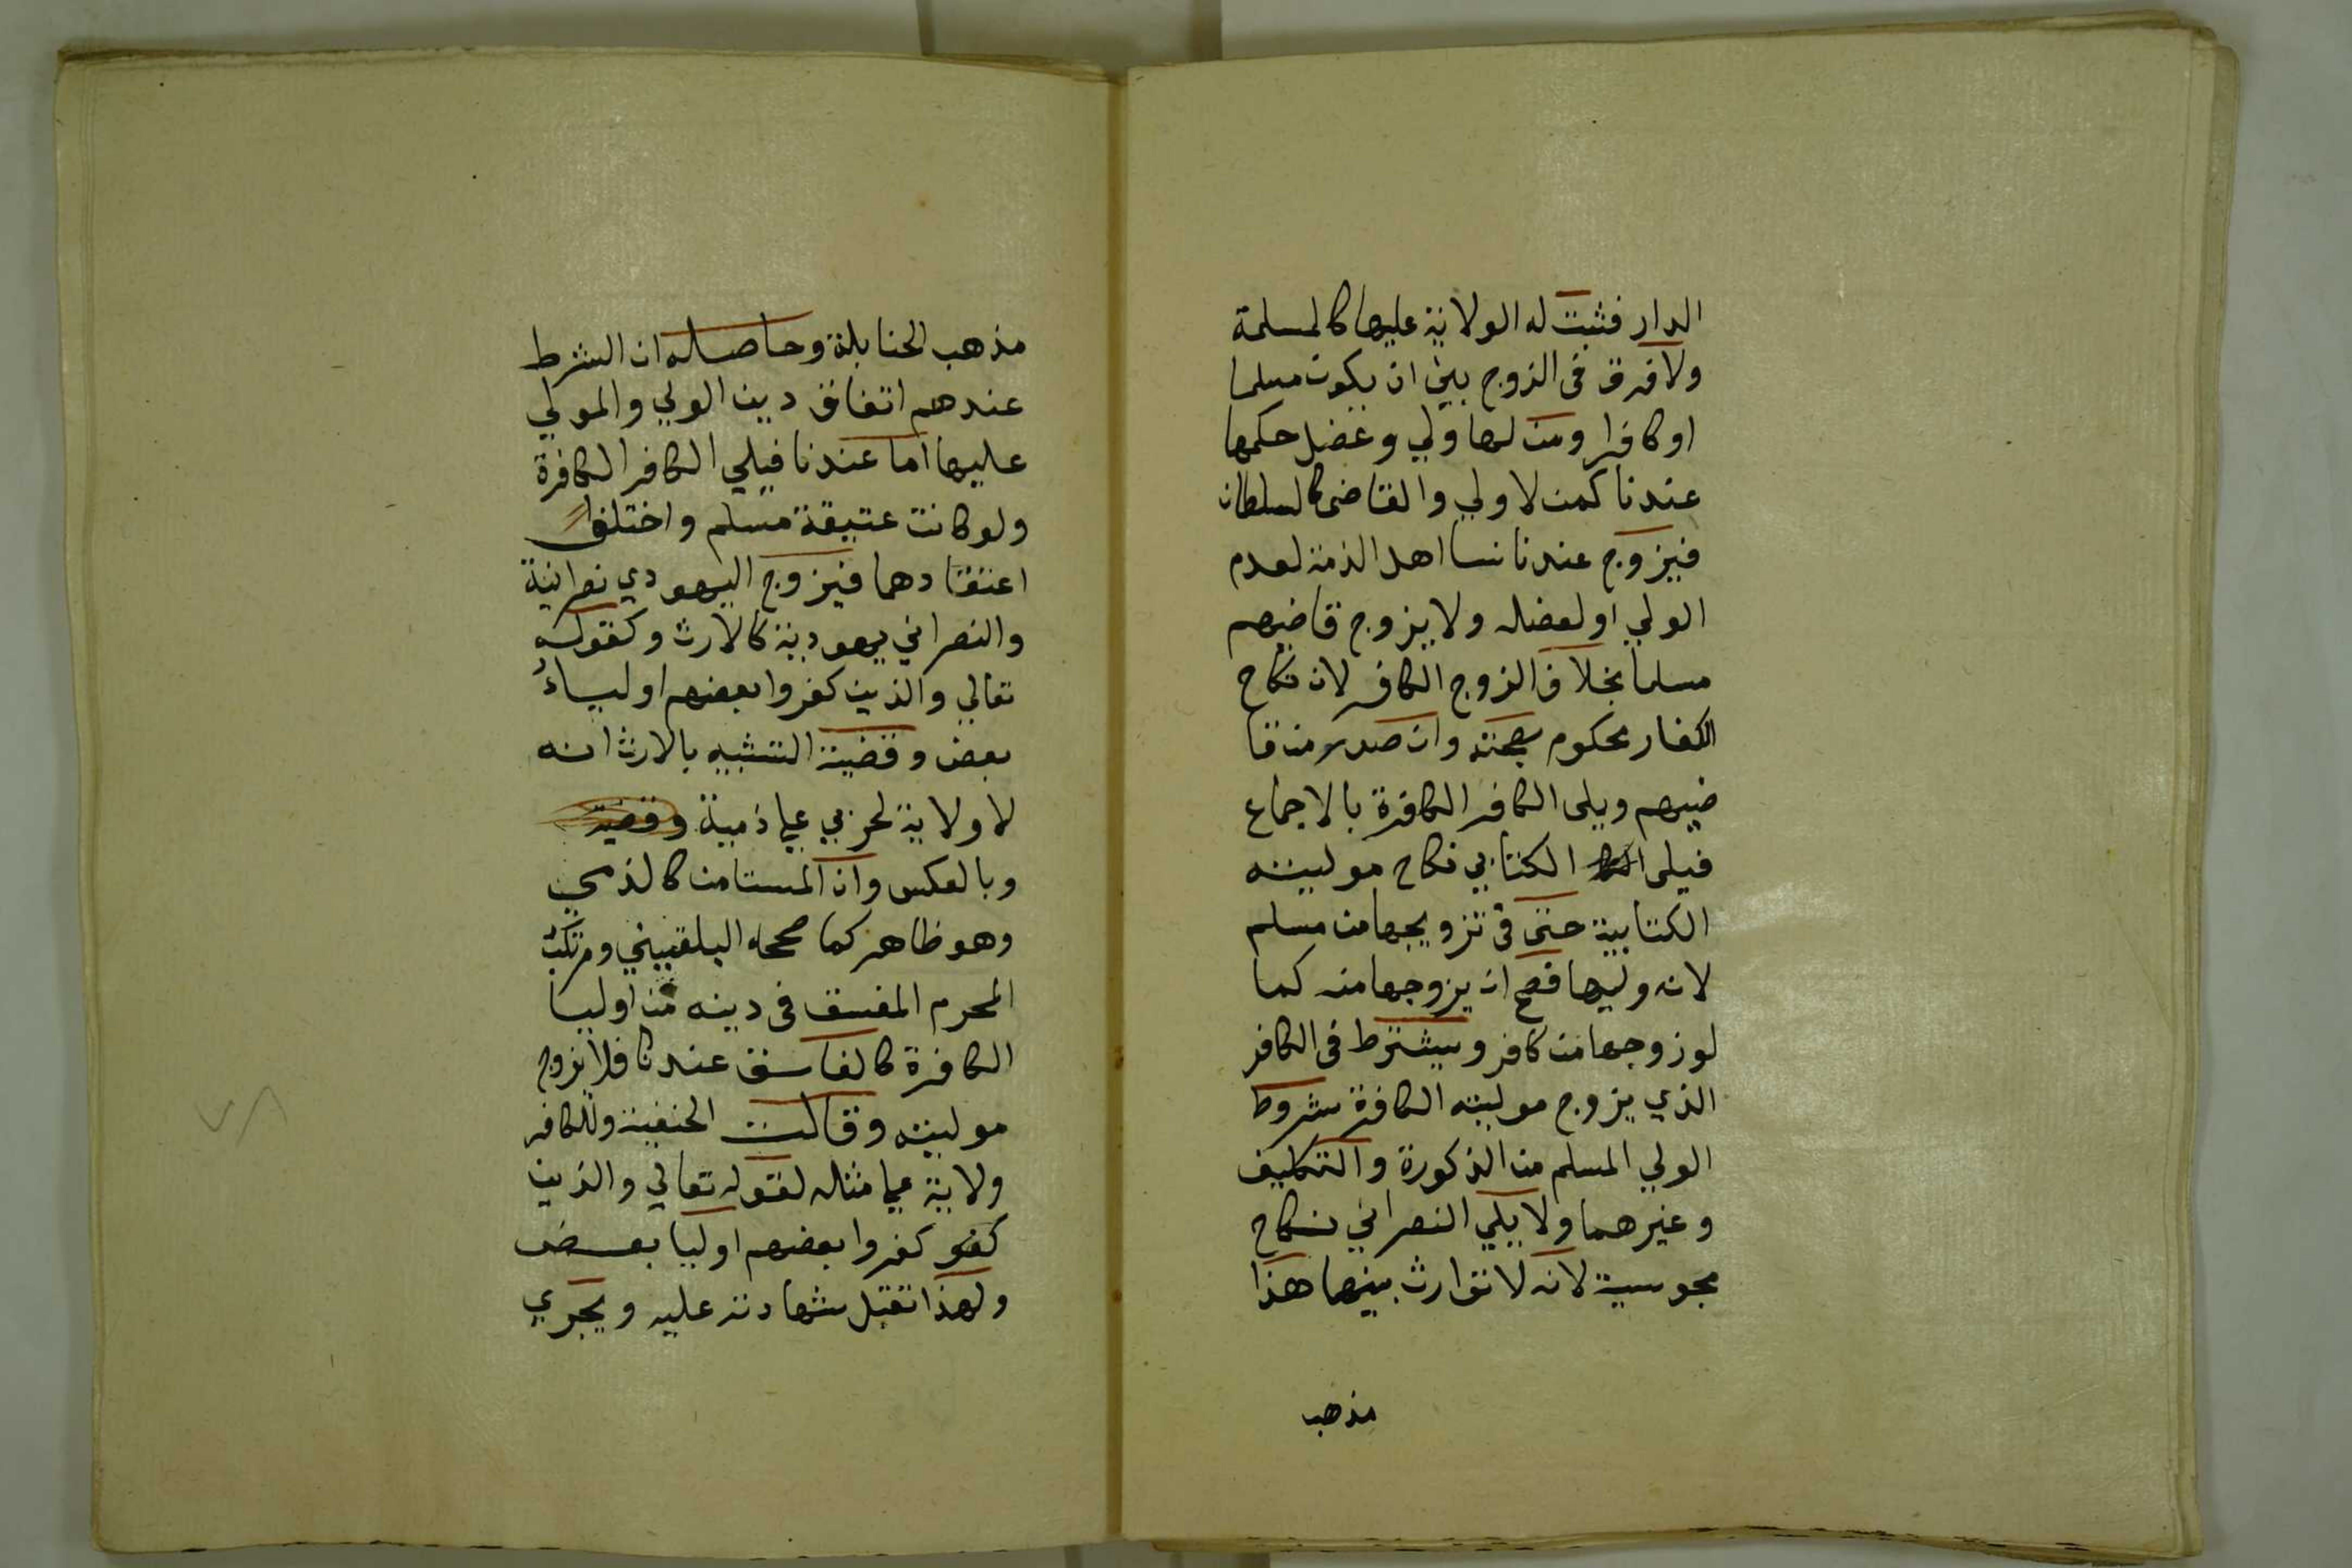 الدار فثبت له الولاية عليها كالمسلمة
ولا فرق فى الزوج بين ان يكون مسلما
او كافرا ومن لها ولي وعضل حكمها
عندنا كمن لا ولي والقاضى كالسلطان
فيزوج عندنا نسا اهل الذمة لعدم
الولي او لعضله ولا يزوج قاضيهم
مسلما بخلاف الزوج الكافر لان نكاح
الكفار محكوم بصحته وان صدر من قا
ضيهم ويلى الكافر الكافرة بالاجماع
فيلى الكتابي نكاح موليته
الكتابية حتى فى تزويجها من مسلم
لانه وليها فصح ان يزوجها منه كما
لو زوجها من كافر ويشترط فى الكافر
الذي يزوج موليته الكافرة شروط
الولي المسلم من الذكورة والتكليف
وغيرهما ولا يلي النصراني نكاح
مجوسية لانه لا توارث بينهما هذا
مذهب
مذهب الحنابلة وحاصله ان الشرط
عندهم اتفاق دين الولي والمولي
عليها اما عندنا فيلي الكافر الكافرة
ولو كانت عتيقة مسلم واختلف
اعتقادهما فيزوج اليهودي نصرانية
والنصراني يهودية كالارث وكقوله
تعالي والذين كفروا بعضهم اولياءُ
بعض وقضية التشبيه بالارث انه
لا ولاية لحربي علي ذمية وقضية
وبالعكس وان المستامن كالذمي
وهو ظاهر كما صححه البلقيني ومرتكب
المحرم المفسق فى دينه من اوليا
الكافرة كالفاسق عندنا فلا يزوج
موليته وقالت الحنفية وللكافر
ولاية علي مثله لقوله تعالي والذين
كفو كفروا بعضهم اوليا بعض
ولهذا تقبل شهادته عليه ويجري